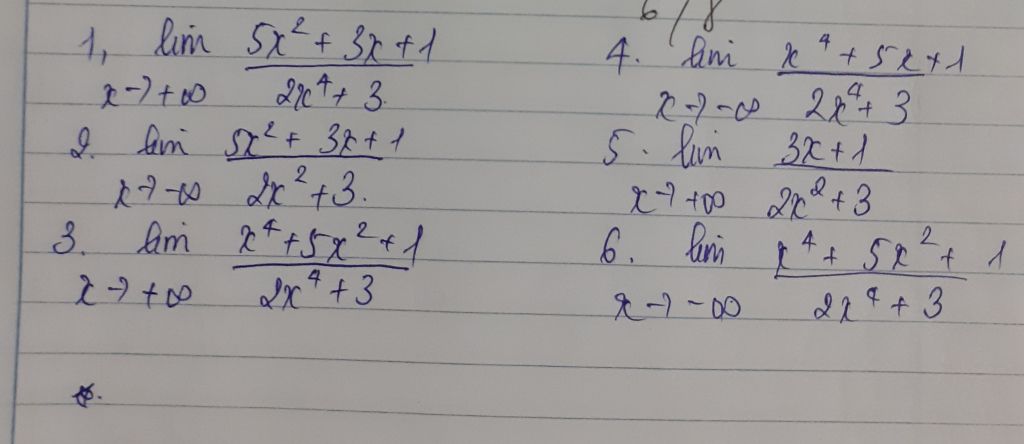 6/8
1, lim (5x² + 3x + 1)/(2x⁴ + 3)
x→+∞
2. lim (5x² + 3x + 1)/(2x² + 3.)
x→-∞
3. lim (x⁴ + 5x² + 1)/(2x⁴ + 3)
x→+∞
4. lim (x⁴ + 5x + 1)/(2x⁴ + 3)
x→-∞
5. lim (3x + 1)/(2x² + 3)
x→+∞
6. lim (x⁴ + 5x² + 1)/(2x⁴ + 3)
x→-∞